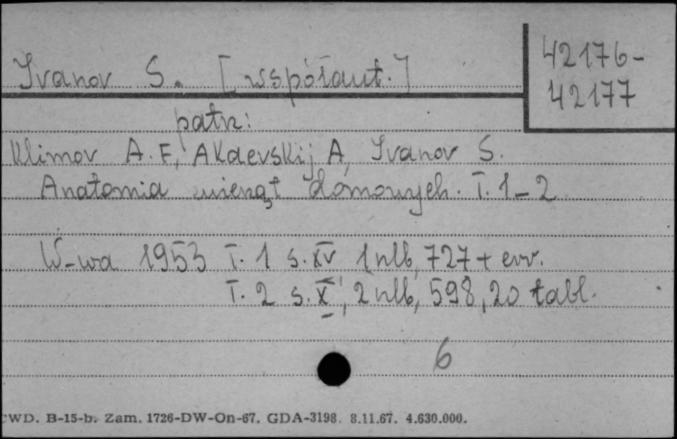 Ivanov S. [współaut.]
42176-
42177
patrz:
Klimov A.F., Akaevskij A, Ivanov S.
Anatomia zwierząt domowych. T. 1-2
W-wa 1953 T. 1 s. XV 1 nlb, 727 + err.
T. 2 s. X, 2 nlb, 598, 20 tabl.
6
CWD. B-15-b. Zam. 1726-DW-On-67. GDA-3198. 8.11.67. 4.630.000.